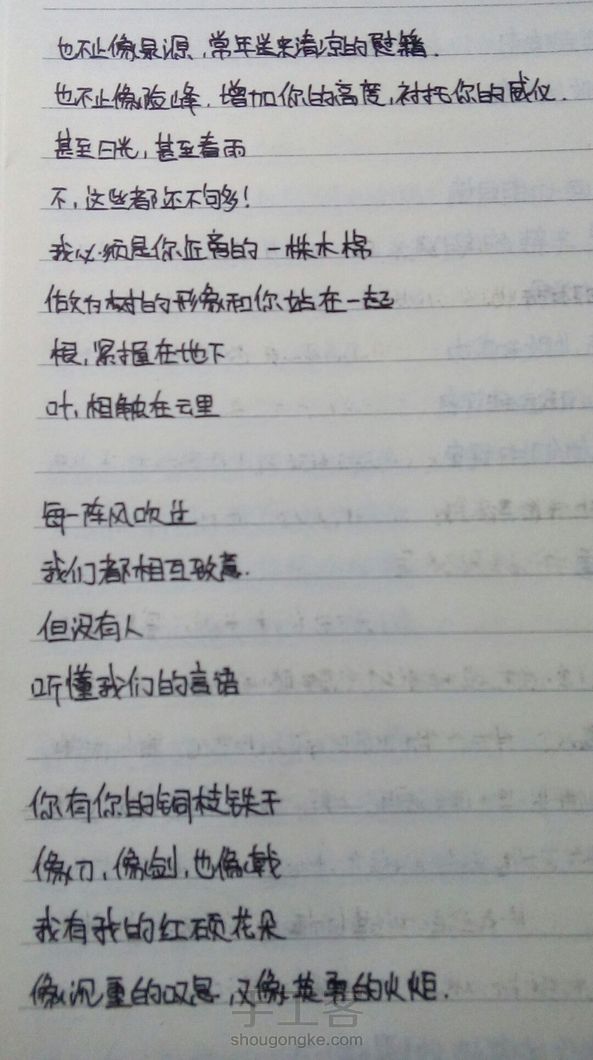 也不止像泉源，常年送来清凉的慰籍．
也不止像险峰，增加你的高度，衬托你的威仪．
甚至日光，甚至春雨
不，这些都还不够多！
我必须是你近旁的一株木棉
做为树的形象和你站在一起
根，紧握在地下
叶，相触在云里
每一阵风吹过
我们都相互致意．
但没有人
听懂我们的言语
你有你的铜枝铁干
像刀，像剑，也像戟
我有我的红硕花朵
像沉重的叹息，又像英勇的火炬．
手工客
shougongke.com